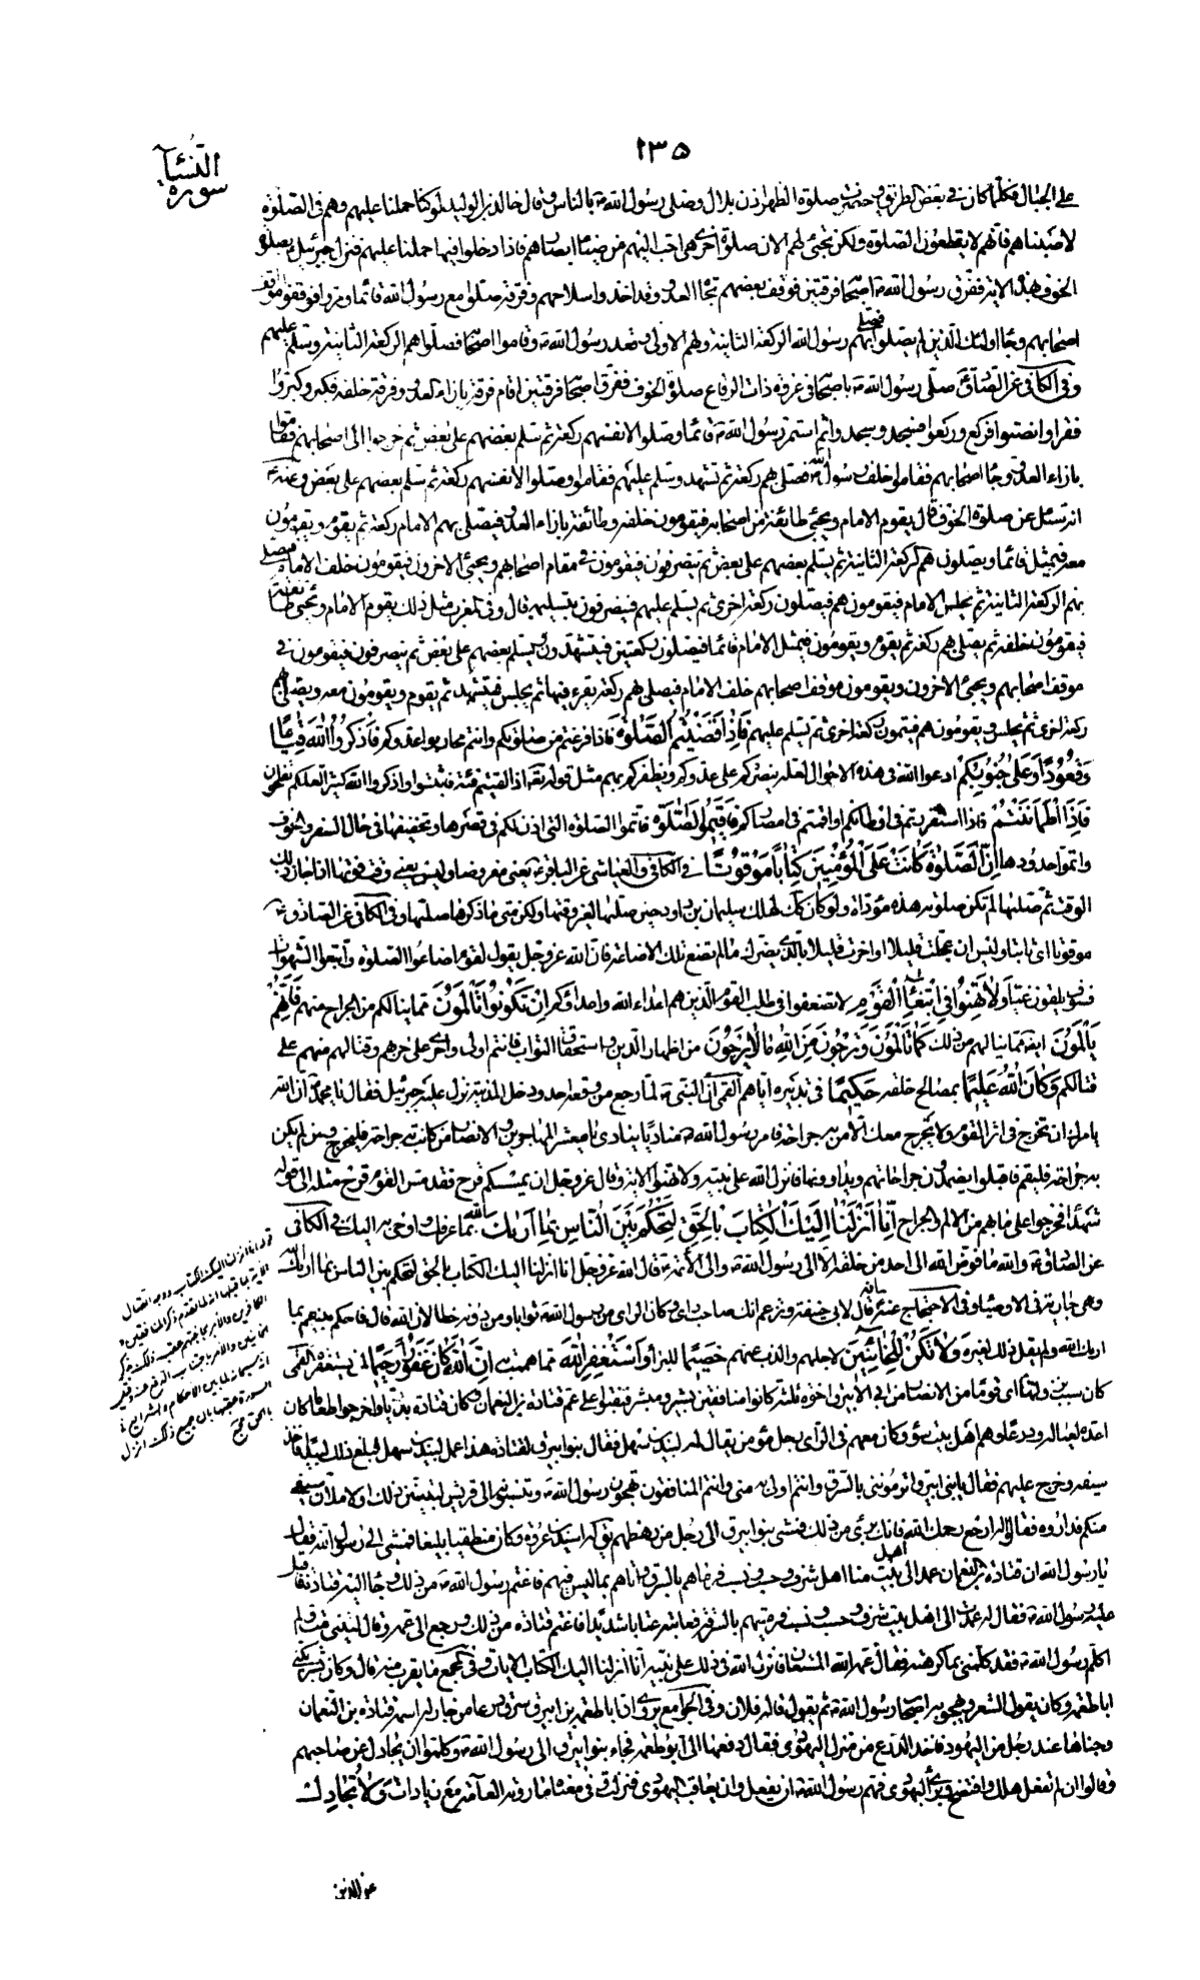 ١٣٥
سورة النساء
على الجبال فلما كان في بعض الطريق وحضرت صلوة الظهر اذن بلال وصلى رسول الله ص بالناس فقال خالد بن الوليد لو كنا حملنا عليهم وهم في الصلوة
لاصبناهم فانهم لا يقطعون الصلوة ولكن تجئ لهم الان صلوة اخرى هي احب اليهم من ضياء ابصارهم فاذا دخلوا فيها حملنا عليهم فنزل جبرئيل بصلوة
الخوف بهذه الاية ففرق رسول الله ص اصحابه فرقتين فوقف بعضهم تجاه العدو وقد اخذوا سلاحهم وفرقة صلوا مع رسول الله قائما ومروا فوقفوا موقف
اصحابهم وجاء اولئك الذين لم يصلوا فصلى بهم رسول الله الركعة الثانية ولهم الاولى وقعد رسول الله ص وقاموا اصحابه فصلوا هم الركعة الثانية وسلم عليهم
وفي الكافي عن الصادق ع صلى رسول الله ص باصحابه في غزوة ذات الرقاع صلوة الخوف ففرق اصحابه فرقتين اقام فرقة بازاء العدو وفرقة خلفه فكبر وكبروا
فقرا وانصتوا فركع وركعوا فسجد وسجدوا ثم استمر رسول الله ص قائما وصلوا لانفسهم ركعة ثم سلم بعضهم على بعض ثم خرجوا الى اصحابهم فقاموا
بازاء العدو وجاء اصحابهم فقاموا خلف رسول الله ص فصلى بهم ركعة ثم تشهد وسلم عليهم فقاموا وصلوا لانفسهم ركعة ثم سلم بعضهم على بعض وعنه ع
انه سئل عن صلوة الخوف قال يقوم الامام ويجئ طائفة من اصحابه فيقومون خلفه وطائفة بازاء العدو فيصلى بهم الامام ركعة ثم يقوم ويقومون
معه فيمثل قائما ويصلون هم الركعة الثانية ثم يسلم بعضهم على بعض ثم ينصرفون فيقومون في مقام اصحابهم ويجئ الاخرون فيقومون خلف الامام فيصلى
بهم الركعة الثانية ثم يجلس الامام فيقومون هم فيصلون ركعة اخرى ثم يسلم عليهم فينصرفون بتسليمه قال وفي المغرب مثل ذلك يقوم الامام وتجئ طائفة
فيقومون خلفه ثم يصلى بهم ركعة ثم يقوم ويقومون فيمثل الامام قائما فيصلون ركعتين فيتشهدون ويسلم بعضهم على بعض ثم ينصرفون فيقومون في
موقف اصحابهم ويجئ الاخرون ويقومون موقف اصحابهم خلف الامام فيصلى بهم ركعة يقرء فيها ثم يجلس فيتشهد ثم يقوم ويقومون معه ويصلى بهم
ركعة اخرى ثم يجلس ويقومون هم فيتمون ركعة اخرى ثم يسلم عليهم فَاِذَا قَضَيْتُمُ الصَّلٰوةَ فاذا فرغتم من صلوتكم وانتم محاربوا عدوكم فَاذْكُرُوا اللّٰهَ قِيَامًا
وَقُعُودًا وَعَلٰى جُنُوبِكُمْ ادعوا الله في هذه الاحوال لعله ينصركم على عدوكم ويظفركم بهم مثل قوله تعه اذا لقيتم فئة فاثبتوا واذكروا الله كثيرا لعلكم تفلحون
فَاِذَا اطْمَاْنَنْتُمْ فاذا استقررتم في اوطانكم واقمتم في امصاركم فَاَقِيمُوا الصَّلٰوةَ فاتموا الصلوة التي اذن لكم في قصرها وتخفيفها في حال السفر والخوف
واتموا حدودها اِنَّ الصَّلٰوةَ كَانَتْ عَلَى الْمُؤْمِنِينَ كِتَابًا مَوْقُوتًا في الكافي والعياشي عن الباقر ع يعني مفروضا وليس يعني وقت فوتها اذا جاز ذلك
الوقت ثم صلتها لم تكن صلوته هذه مؤداة ولو كان كك لهلك سليمان بن داود حين صلتها لغير وقتها ولكن متى ما ذكرها صلتها وفي الكافي عن الصادق ع
موقوتا اى ثابتا وليس ان عجلت قليلا او اخرت قليلا بالذى يضرك ما لم تضع تلك الاضاعة فان الله عز وجل يقول لقوم اضاعوا الصلوة واتبعوا الشهوات
فسوف يلقون غيا وَلَا تَهِنُوا فِي ابْتِغَاءِ الْقَوْمِ لا تضعفوا في طلب القوم الذين هم اعداء الله واعداؤكم اِنْ تَكُونُوا تَاْلَمُونَ مما ينالكم من الجراح منهم فَاِنَّهُمْ
يَاْلَمُونَ ايضا مما ينالهم من ذلك كَمَا تَاْلَمُونَ وَتَرْجُونَ مِنَ اللّٰهِ مَا لَا يَرْجُونَ من اظهار الدين واستحقاق الثواب فانتم اولى واحرى على حربهم وقتالهم منهم على
قتالكم وَكَانَ اللّٰهُ عَلِيمًا بمصالح خلقه حَكِيمًا في تدبيره اياهم القمي ان النبي ص لما رجع من وقعة احد ودخل المدينة نزل عليه جبرئيل فقال يا محمد ان الله
يامرك ان تخرج في اثر القوم ولا يخرج معك الا من به جراحة فامر رسول الله ص مناديا ينادى يا معشر المهاجرين والانصار من كانت به جراحة فليخرج ومن لم يكن
به جراحة فليقم فاقبلوا يضمدون جراحاتهم ويداوونها فانزل الله على نبيه ولا تهنوا الاية وقال عز وجل ان يمسسكم قرح فقد مس القوم قرح مثله الى قوله
شهداء فخرجوا على ما بهم من الالم والجراح اِنَّا اَنْزَلْنَا اِلَيْكَ الْكِتَابَ بِالْحَقِّ لِتَحْكُمَ بَيْنَ النَّاسِ بِمَا اَرٰيكَ اللّٰهُ بما عرفك واوحى به اليك في الكافي
عن الصادق ع والله ما فوض الله الى احد من خلقه الا الى رسول الله ص والى الائمة ع قال الله عز وجل انا انزلنا اليك الكتاب بالحق لتحكم بين الناس بما اريك الله
وهي جارية في الاوصياء وفي الاحتجاج عنه ع انه قال لابي حنيفة وتزعم انك صاحب راى وكان الراى من رسول الله ص صوابا ومن دونه خطا لان الله قال فاحكم بينهم بما
اريك الله ولم يقل ذلك لغيره وَلَا تَكُنْ لِلْخَائِنِينَ لاجلهم والذب عنهم خَصِيمًا للبرآء وَاسْتَغْفِرِ اللّٰهَ مما هممت به اِنَّ اللّٰهَ كَانَ غَفُورًا رَحِيمًا لمن يستغفره القمي
كان سبب نزولها ان قوما من الانصار من بني الابيرق اخوة ثلثة كانوا منافقين بشير ومبشر وبشر فنقبوا على عم قتادة بن النعمان وكان قتادة بدريا واخرجوا طعاما كان
اعده لعياله ودرعا وهم اهل بيت سوء وكان معهم في الراى رجل مؤمن يقال له لبيد بن سهل فقال بنو ابيرق لقتادة هذا عمل لبيد بن سهل فبلغ ذلك لبيدا فاخذ
سيفه وخرج عليهم فقال يا بني ابيرق اترموننى بالسرق وانتم اولى به منى وانتم المنافقون تهجون رسول الله ص وتنسبون الى قريش لتبينن ذلك او لاملأن سيفى
منكم فداروه فقالوا له ارجع رحمك الله فانك برئ من ذلك فمشى بنو ابيرق الى رجل من رهطهم يق له اسيد بن عروة وكان منطقيا بليغا فمشى الى رسول الله فقال
يا رسول الله ان قتادة بن النعمان عمد الى اهل بيت منا اهل شرف وحسب ونسب فرماهم بالسرق واتاهم بما ليس فيهم فاغتم رسول الله ص من ذلك وجاء اليه قتادة فاقبل
عليه رسول الله ص فقال له عمدت الى اهل بيت شرف وحسب ونسب فرميتهم بالسرقة فعاتبه عتابا شديدا فاغتم قتادة من ذلك ورجع الى عمه وقال ليتنى مت ولم
اكلم رسول الله ص فقد كلمنى بما كرهته فقال عمه الله المستعان فانزل الله في ذلك على نبيه انا انزلنا اليك الكتاب الايات وفي المجمع ما يقرب منه قال وكان بشير يكنى
ابا طعمة وكان يقول الشعر ويهجو به اصحاب رسول الله ص ثم يقول قاله فلان وفي الجوامع يروى ان ابا طعمة بن ابيرق سرق درعا من جار له اسمه قتادة بن النعمان
وخباها عند رجل من اليهود فاخذ الدرع من منزل اليهودى فقال دفعها الى ابو طعمة فجاء بنو ابيرق الى رسول الله ص وكلموه ان يجادل عن صاحبهم
وقالوا ان لم تفعل هلك وافتضح وبرئ اليهودى فهم رسول الله ص ان يفعل وان يعاقب اليهودى فنزلت وفي معناها روته العامة مع زيادات وَلَا تُجَادِلْ
عن الذين